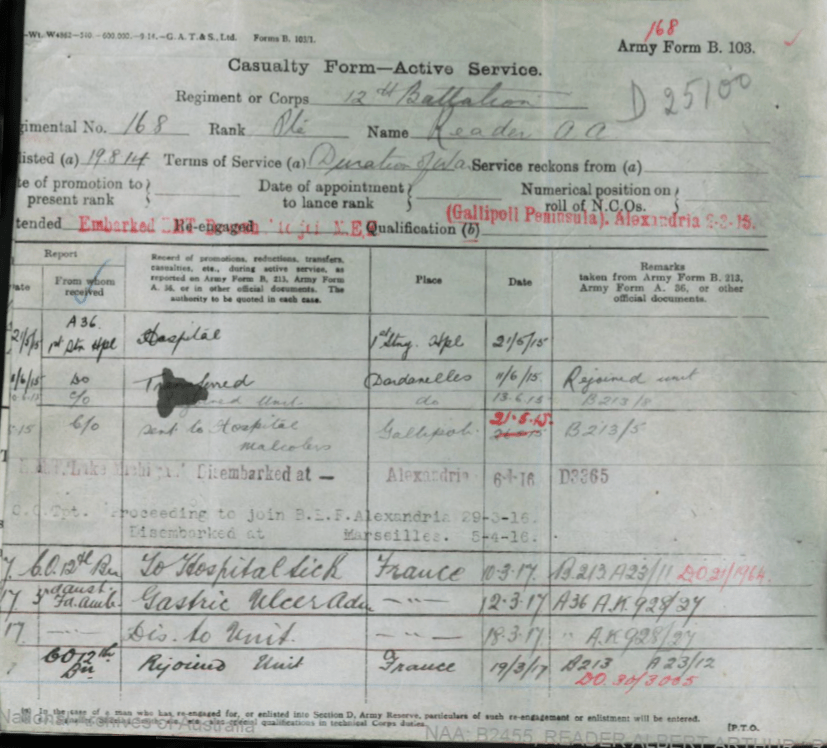 -Wt. W4882-240.-600,000.-9-14.-G. A. T. & S., Ltd. Forms B. 103/1.
168
Army Form B. 103.
Casualty Form—Active Service.
Regiment or Corps 12th Battalion
D 25100
gimental No. 168 Rank Pte Name Reader A A
listed (a) 19.8.14 Terms of Service (a) Duration of War Service reckons from (a)
te of promotion to present rank } Date of appointment to lance rank } Numerical position on roll of N.C.Os. }
tended Embarked Re-engaged Qualification (b) (Gallipoli Peninsula). Alexandria 2-3-15.
Report
Date From whom received
Record of promotions, reductions, transfers, casualties, etc., during active service, as reported on Army Form B. 213, Army Form A. 36, or in other official documents. The authority to be quoted in each case.
Place
Date
Remarks taken from Army Form B. 213, Army Form A. 36, or other official documents.
21/5/15 A36. 1st Stn Hpl Hospital 1st Stny. Hpl 21/5/15
11/6/15 Do Transferred Dardanelles 11/6/15 Rejoined unit
C/O Unit do 13.6.15 B213/8
5-15 C/O Sent to Hospital Gallipoli 21-5-15 B213/5
Disembarked at — Alexandria 6-1-16 D3365
Proceeding to join B.E.F. Alexandria 29-3-16.
Disembarked at Marseilles. 5-4-16.
7. C.O. 12th Bn To Hospital Sick France 10-3-17 B.213 A23/11 DO 21/1964
17 3rd Aust. Fd. Amb. Gastric Ulcer Adm — " — 12-3-17 A36 A.K 928/27
17. — " — Dis. to Unit. — " — 18-3-17 " A.K 928/27
CO 12th Bn Rejoined Unit France 19/3/17 B213 A23/12
DO 30/3005
(a) In the case of a man who has re-engaged for, or enlisted into Section D, Army Reserve, particulars of such re-engagement or enlistment will be entered.
special qualifications in technical Corps duties.
[P.T.O.
National Archives of Australia
NAA: B2455, READER ALBERT ARTHUR